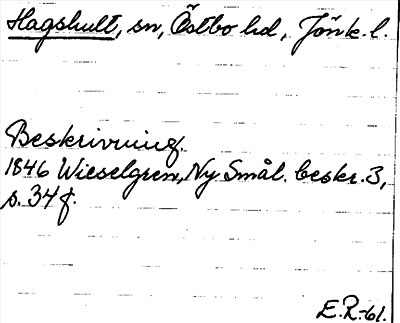 Hagshult, sn, Östbo hd, Jönk. l.
Beskrivning.
1846 Wieselgren, Ny Smål. beskr. 3,
s. 34 f.
E.R.-61.